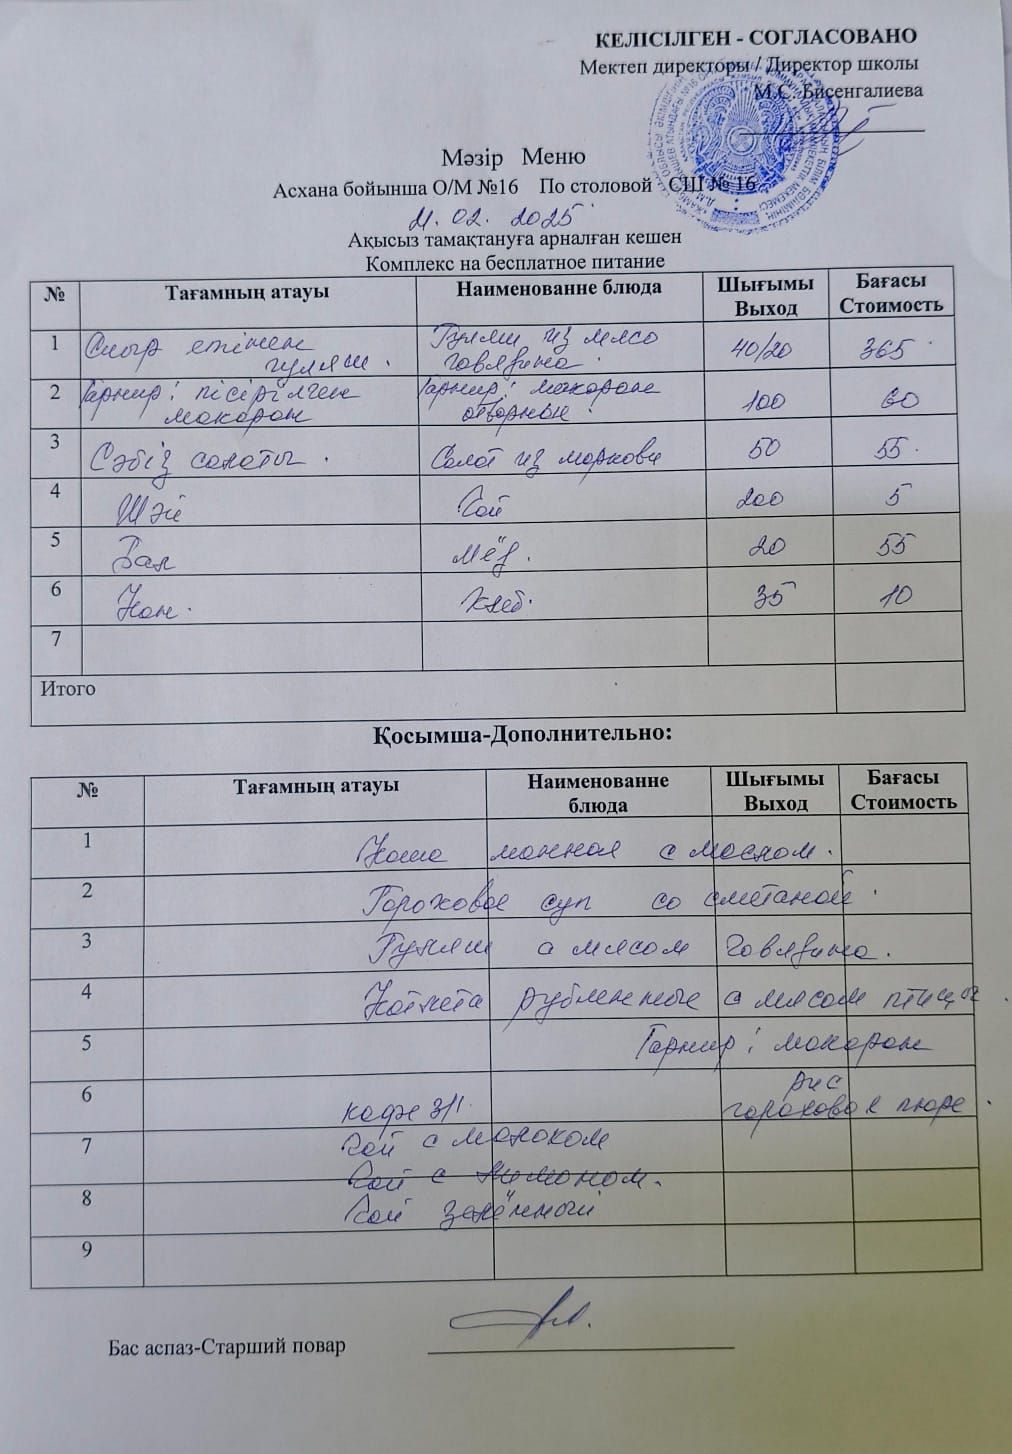 КЕЛІСІЛГЕН - СОГЛАСОВАНО
Мектеп директоры / Директор школы
М.С. Бисенгалиева
Мәзір Меню
Асхана бойынша О/М №16 По столовой СШ № 16
21.02.2025
Ақысыз тамақтануға арналған кешен
Комплекс на бесплатное питание
№ Тағамның атауы Наименованне блюда Шығымы Выход Бағасы Стоимость
1 Сиыр етінен гуляш. Гуляш из мясо говядина. 40/20 365
2 Гарнир: пісірілген макарон Гарнир: макарон отворный. 100 60
3 Сәбіз салаты. Салат из моркови 50 55
4 Шәй Чай 200 5
5 Бал Мёд. 20 55
6 Нан. Хлеб. 35 10
7
Итого
Қосымша-Дополнительно:
№ Тағамның атауы Наименованне блюда Шығымы Выход Бағасы Стоимость
1 Каша манная с маслом.
2 Гороховое суп со сметаной.
3 Гуляш с мясом говядина.
4 Котлета рубленные с мясом птицы.
5 Гарнир: макарон
рис
6 кофе 3/1. гороховое пюре.
7 Чай с молоком
Чай с лимоном.
8 Чай зелённый
9
Бас аспаз-Старший повар